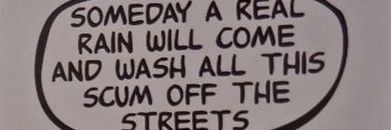 SOMEDAY A REAL
RAIN WILL COME
AND WASH ALL THIS
SCUM OFF THE
STREETS